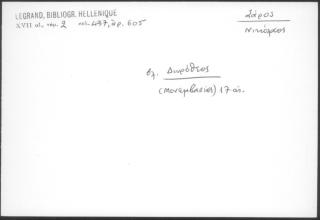 LEGRAND, BIBLIOGR. HELLENIQUE
XVII αἰ., τόμ. 2 σελ. 437, ἀρ. 605
Σάρος
Νικόλαος
βλ. Δωρόθεος
(Μονεμβασίας) 17 αι.